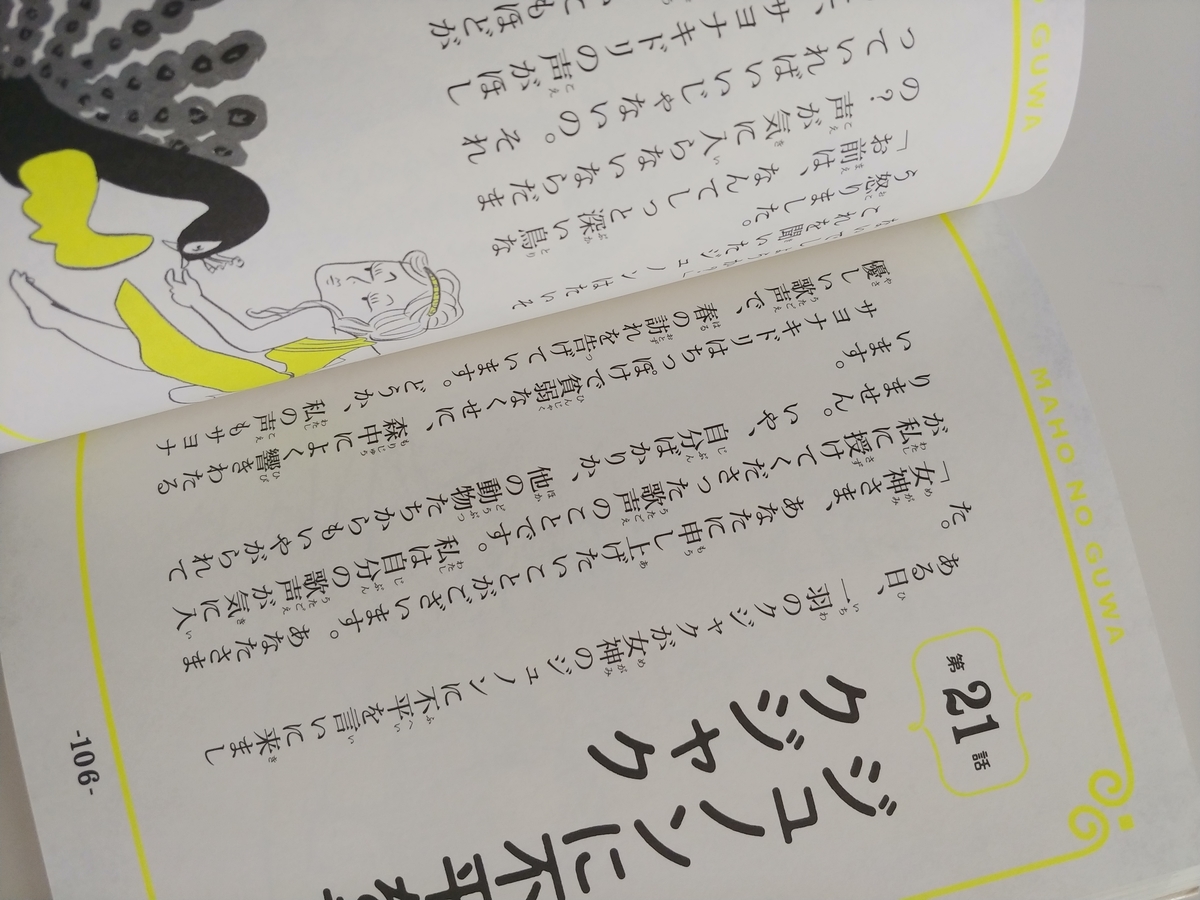 MAHO NO GUWA
第21話
ジュノンに不平を
クジャク
ある日、一羽のクジャクが女神のジュノンに不平を言いに来まし
た。
「女神さま、あなたに申し上げたいことがございます。あなたさま
が私に授けてくださった歌声のことです。私は自分の歌声が気に入
りません。いや、自分ばかりか、他の動物たちからもいやがられて
います。
サヨナキドリはちっぽけで貧弱なくせに、森中によく響きわたる
優しい歌声で、春の訪れを告げています。どうか、私の声もサヨナ
-106-
GUWA
これを聞いたジュノンはたいそ
う怒りました。
「お前は、なんてしっと深い鳥な
の？ 声が気に入らないならだま
っていればいいじゃないの。それ
、サヨナキドリの声がほし
もほどが